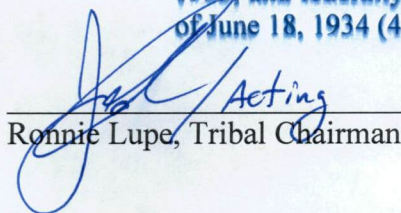 of June 18, 1934 (4
Acting
Ronnie Lupe, Tribal Chairman